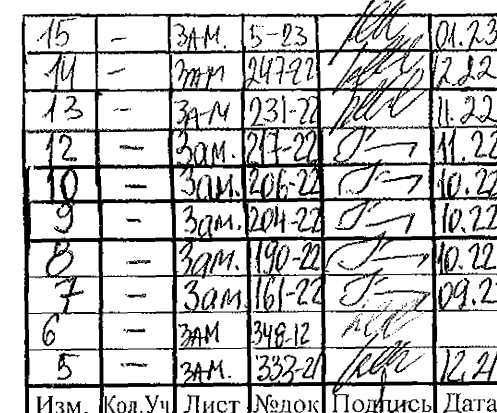 15 – ЗАМ. 5-23 01.23
14 – ЗАМ 247-22 12.22
13 – ЗАМ 231-22 11.22
12 – Зам. 217-22 11.22
10 – Зам. 206-22 10.22
9 – Зам. 204-22 10.22
8 – Зам. 190-22 10.22
7 – Зам. 161-22 09.2
6 – ЗАМ 348-12
5 – ЗАМ. 333-21 12.21
Изм. Кол.Уч Лист №док Подпись Дата